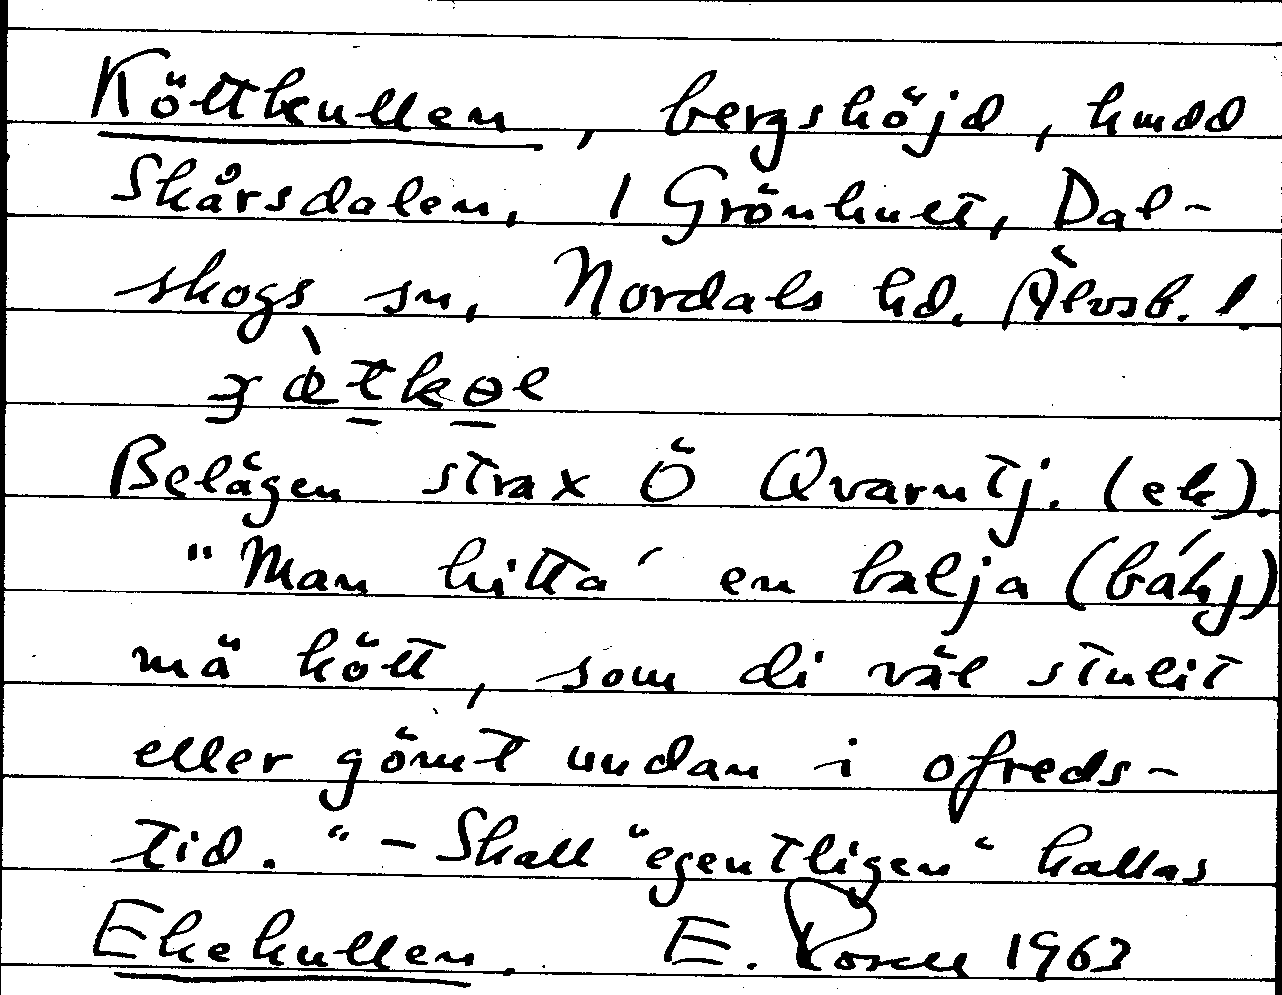 Köttkullen, bergshöjd, hmdd
Skårsdalen, 1 Grönhult, Dal-
skogs sn, Nordals hd. Älvsb. l.
Belägen strax Ö Qvarntj. (ek).
"Man hitta' en balja (báḷj)
mä kött, som di väl stulit
eller gömt undan i ofreds-
tid." - Skall "egentligen" kallas
Ekekullen. E. Rosell 1963